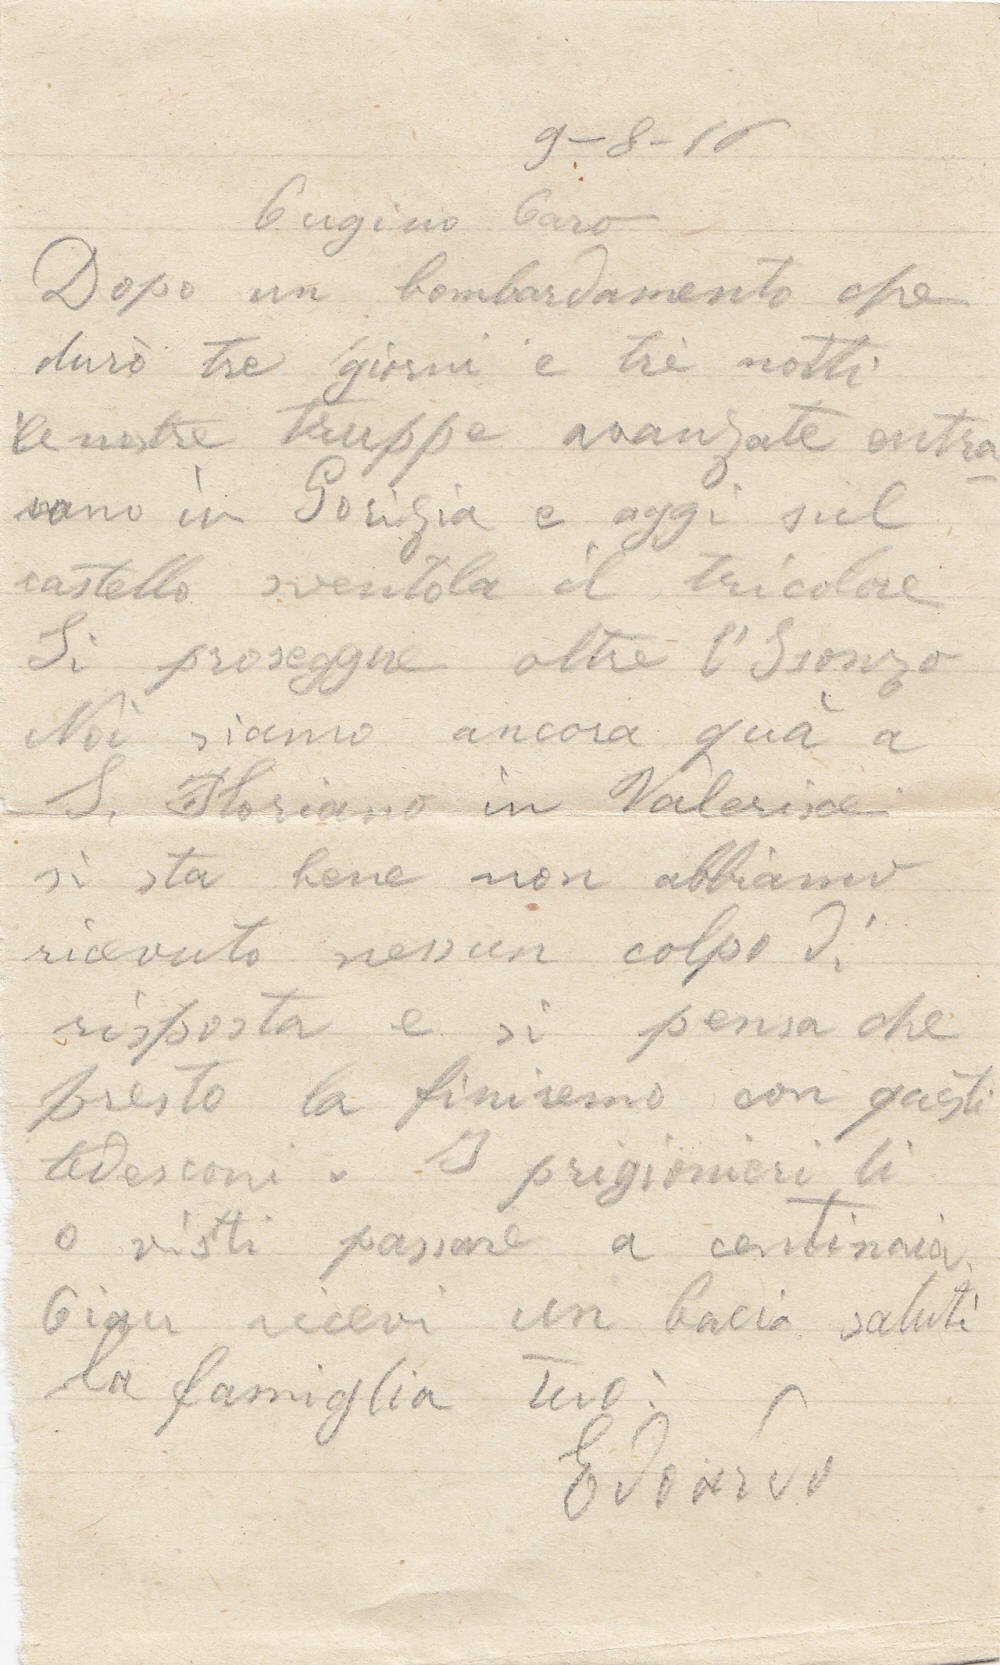 9-8-16
Cugino Caro
Dopo un bombardamento che
durò tre giorni e tre notti
le nostre truppe avanzate entra
vano in Gorizia e oggi sul
castello sventola il tricolore
Si proseggue oltre l'Isonzo
Noi siamo ancora quà a
S. Floriano in
si sta bene non abbiamo
ricevuto nessun colpo di
risposta e si pensa che
presto la finiremo con questi
tedesconi. I prigionieri li
o visti passare a centinaia.
Ciau ricevi un bacio saluti
la famiglia tuo:
Edoardo